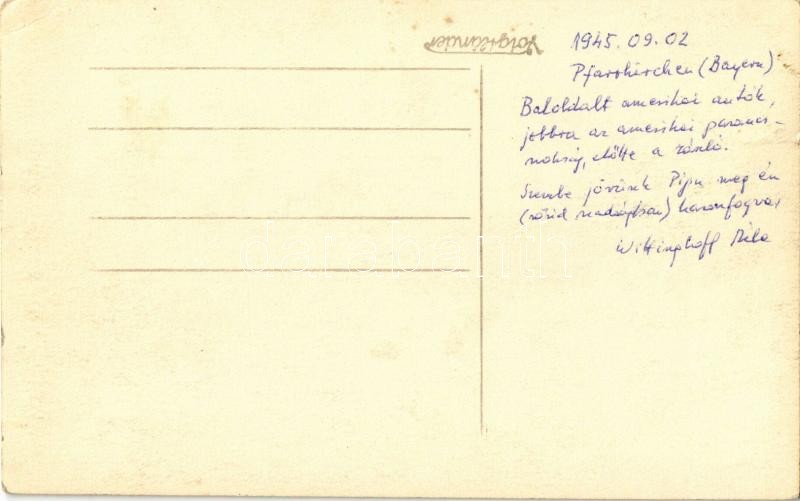 Voigtländer
1945.09.02
Pfarrkirchen (Bayern)
Baloldalt amerikai autók,
jobbra az amerikai parancs-
nokság, előtte a zászló.
Szembe jövünk Pipu meg én
(rövid nadrágban) karonfogva
Wittinghoff Béla